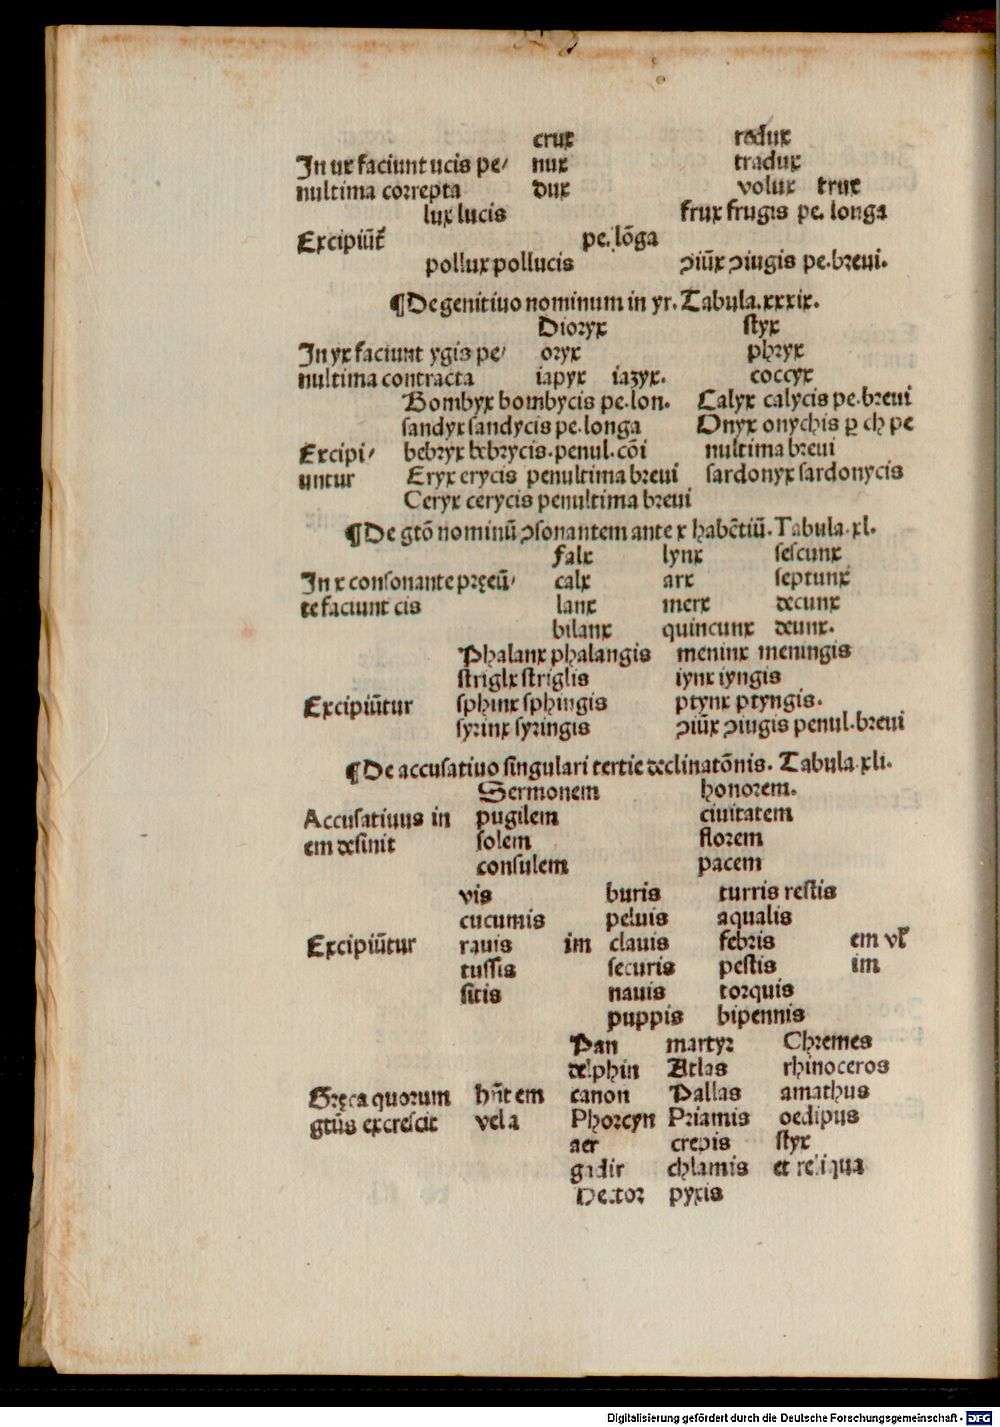 crux redux
In ux faciunt ucis pe⸗ nux tradux
nultima correpta dux volux trux
lux lucis frux frugis pe. longa
Excipiūt᷑ pe. lōga
pollux pollucis ↄiūx ↄiugis pe. breui.
¶De genitiuo nominum in yx. Tabula. xxxix.
Dioryx styx
In yx faciunt ygis pe⸗ oryx phryx
nultima contracta iapyx iazyx. coccyx
Bombyx bombycis pe. lon. Calyx calycis pe. breui
sandyx sandycis pe. longa Onyx onychis ꝑ ch pe
Excipi⸗ bebryx bebrycis. penul. cōi nultima breui
untur Eryx erycis penultima breui sardonyx sardonycis
Ceryx cerycis penultima breui
¶De gtō nominū ↄsonantem ante x habētiū. Tabula. xl.
falx lynx sescunx
In x consonante pręeū⸗ calx arx septunx
te faciunt cis lanx merx decunx
bilanx quincunx deunx.
Phalanx phalangis meninx meningis
striglx striglis iynx iyngis
Excipiūtur sphinx sphingis ptynx ptyngis.
syrinx syringis ↄiūx ↄiugis penul. breui
¶De accusatiuo singulari tertie declinatōnis. Tabula. xli.
Sermonem honorem.
Accusatiuus in pugilem ciuitatem
em desinit solem florem
consulem pacem
vis buris turris restis
cucumis peluis aqualis
Excipiūtur rauis im clauis febris em vl̕
tussis securis pestis im
sitis nauis torquis
puppis bipennis
Pan martyr Chremes
delphin Atlas rhinoceros
Gręca quorum hn̄t em canon Pallas amathus
gtūs excrescit vel a Phorcyn Priamis oedipus
aer crepis styx
gadir chlamis et reliqua
Hector pyxis
Digitalisierung gefördert durch die Deutsche Forschungsgemeinschaft - DFG